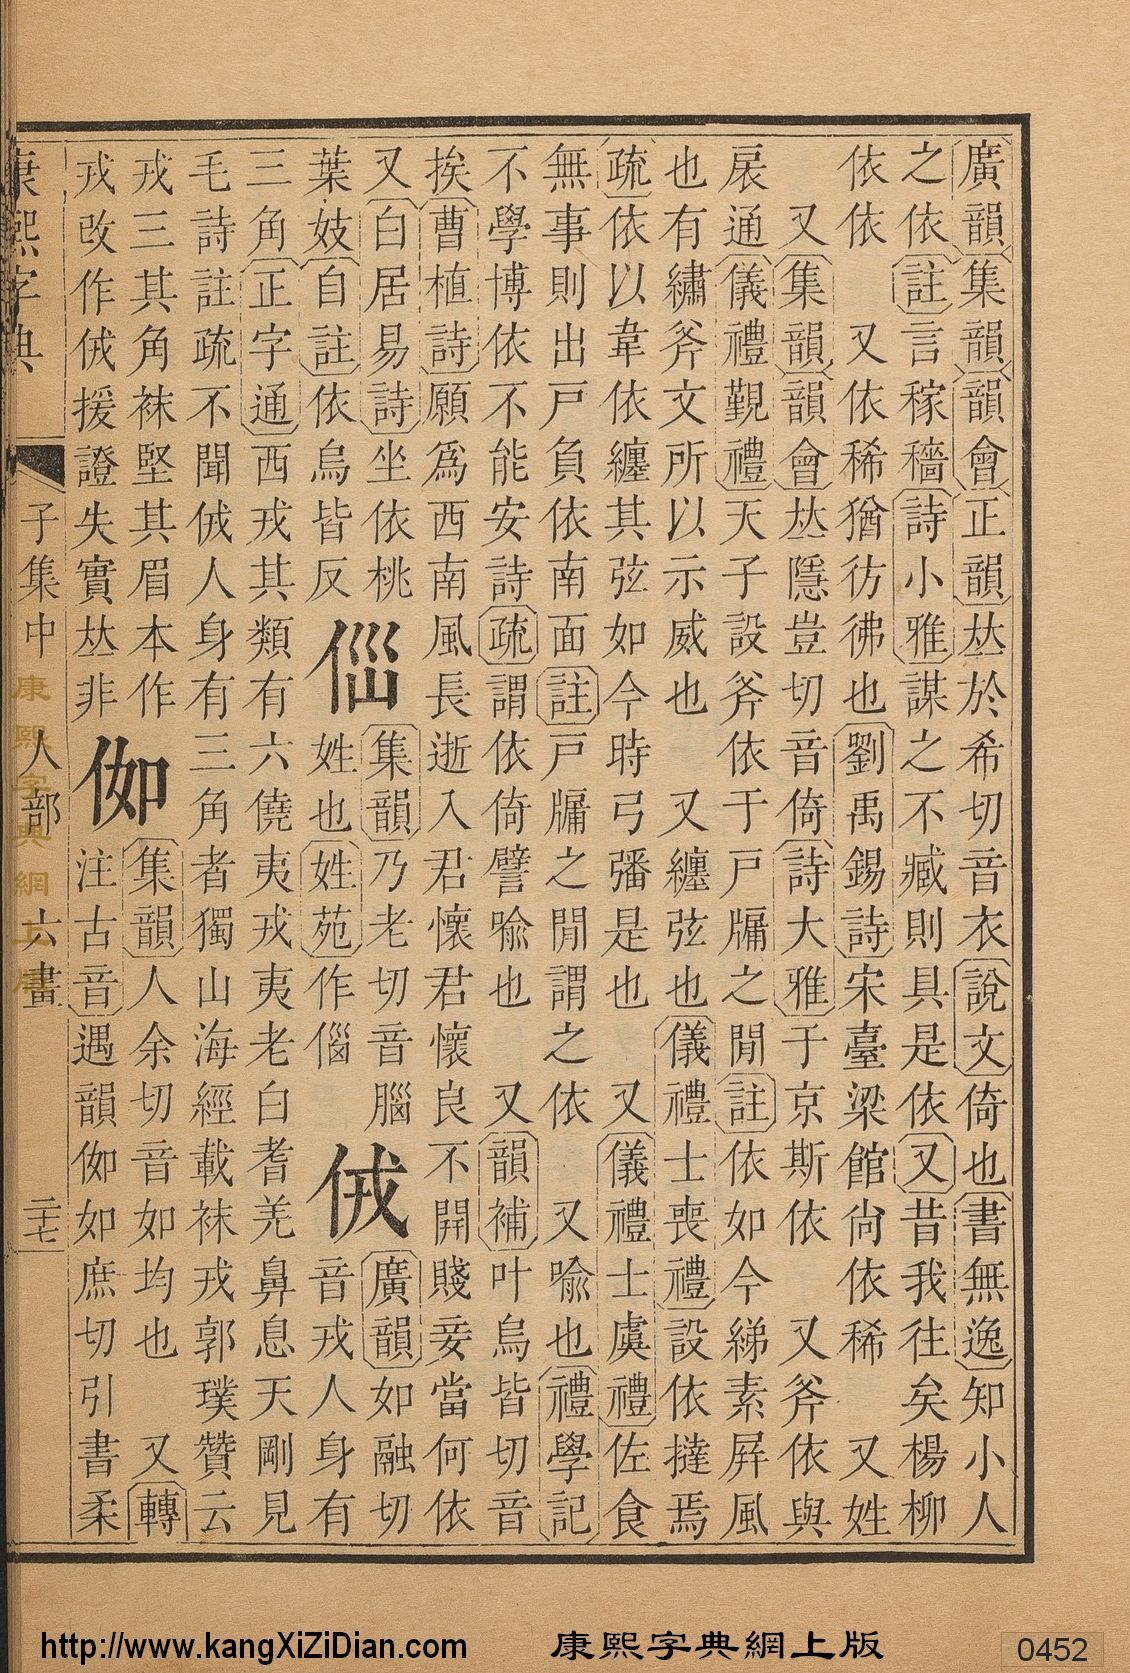 廣韻集韻韻會正韻𠀤於希切音衣說文倚也書無逸知小人
之依註言稼穡詩小雅謀之不臧則具是依又昔我往矣楊柳
依依　又依稀猶彷彿也劉禹錫詩宋臺梁館尚依稀　又姓
又集韻韻會𠀤隱豈切音倚詩大雅于京斯依　又斧依與
扆通儀禮覲禮天子設斧依于戶牖之閒註依如今綈素屛風
也有繡斧文所以示威也　又纏弦也儀禮士喪禮設依撻焉
疏依以韋依纏其弦如今時弓𢐧是也　又儀禮士虞禮佐食
無事則出戶負依南面註戶牖之閒謂之依　又喩也禮學記
不學博依不能安詩疏謂依倚譬喩也　又韻補叶烏皆切音
挨曹植詩願爲西南風長逝入君懷君懷良不開賤妾當何依
又白居易詩坐依桃
葉妓自註依烏皆反
集韻乃老切音腦
姓也姓苑作㑎
廣韻如融切
音戎人身有
三角正字通西戎其類有六僥夷戎夷老白耆羌鼻息天剛見
毛詩註疏不聞人身有三角者獨山海經載袜戎郭璞贊云
戎三其角袜堅其眉本作
戎改作援證失實𠀤非
侞
集韻人余切音如均也　又轉
注古音遇韻侞如庶切引書柔
康熙字典　子集中　人部　六畫　二十七
康熙字典網上版
http://www.kangXiZiDian.com　康熙字典網上版　0452